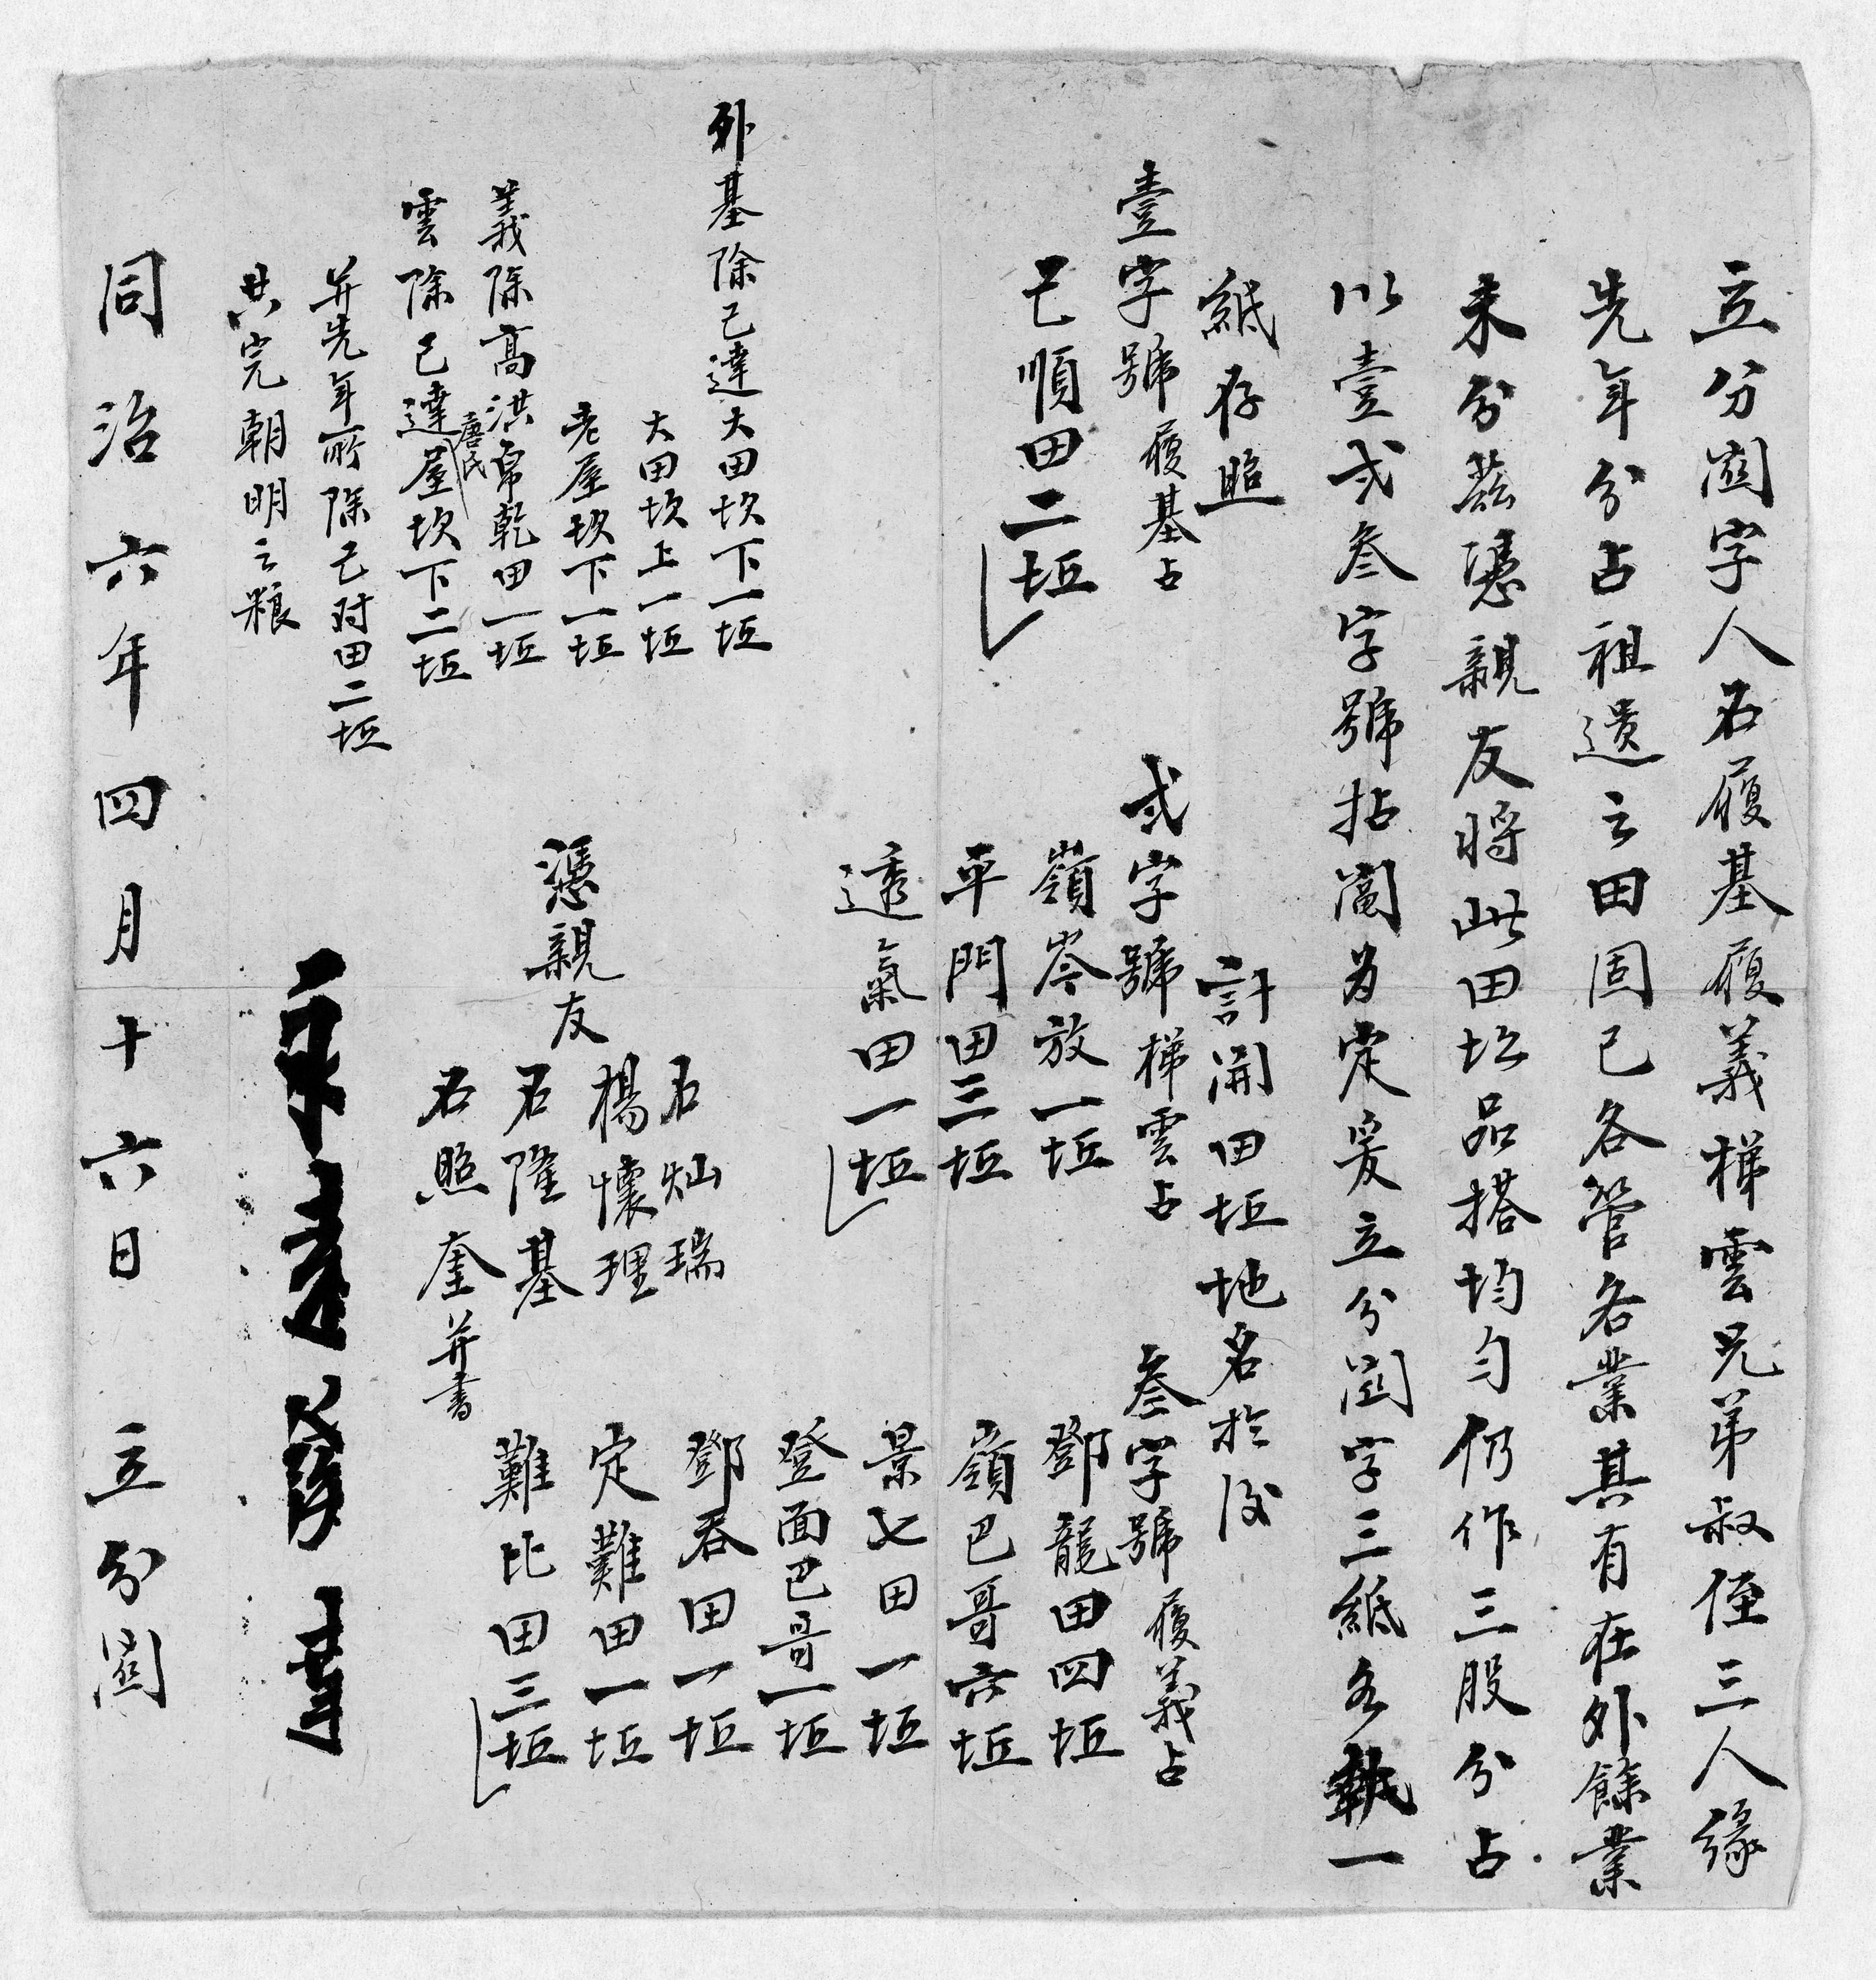 立分關字人石履基履義梯雲兄弟叔侄三人緣
先年分占祖遺之田固已各管各業其有在外餘業
未分茲憑親友將此田坵品搭均勻仍作三股分占
以壹弍叁字號拈鬮为定爰立分關字三紙各執一
紙存照
計開田坵地名於後
壹字號履基占
已順田二坵
弍字號梯雲占
嶺岑放一坵
平門田三坵
透氣田一坵
叁字號履義占
鄧龍田四坵
嶺巴哥六坵
景七田一坵
登面巴哥一坵
鄧吞田一坵
定難田一坵
難比田三坵
外基除已達大田坎下一坵
大田坎上一坵
老屋坎下一坵
義除高洪常乾田一坵
雲除已達唐氏屋坎下二坵
并先年所除已对田二坵
共完朝明之粮
憑親友
石灿瑞
楊懷理
石隆基
石照奎并書
同治六年四月十六日 立分關